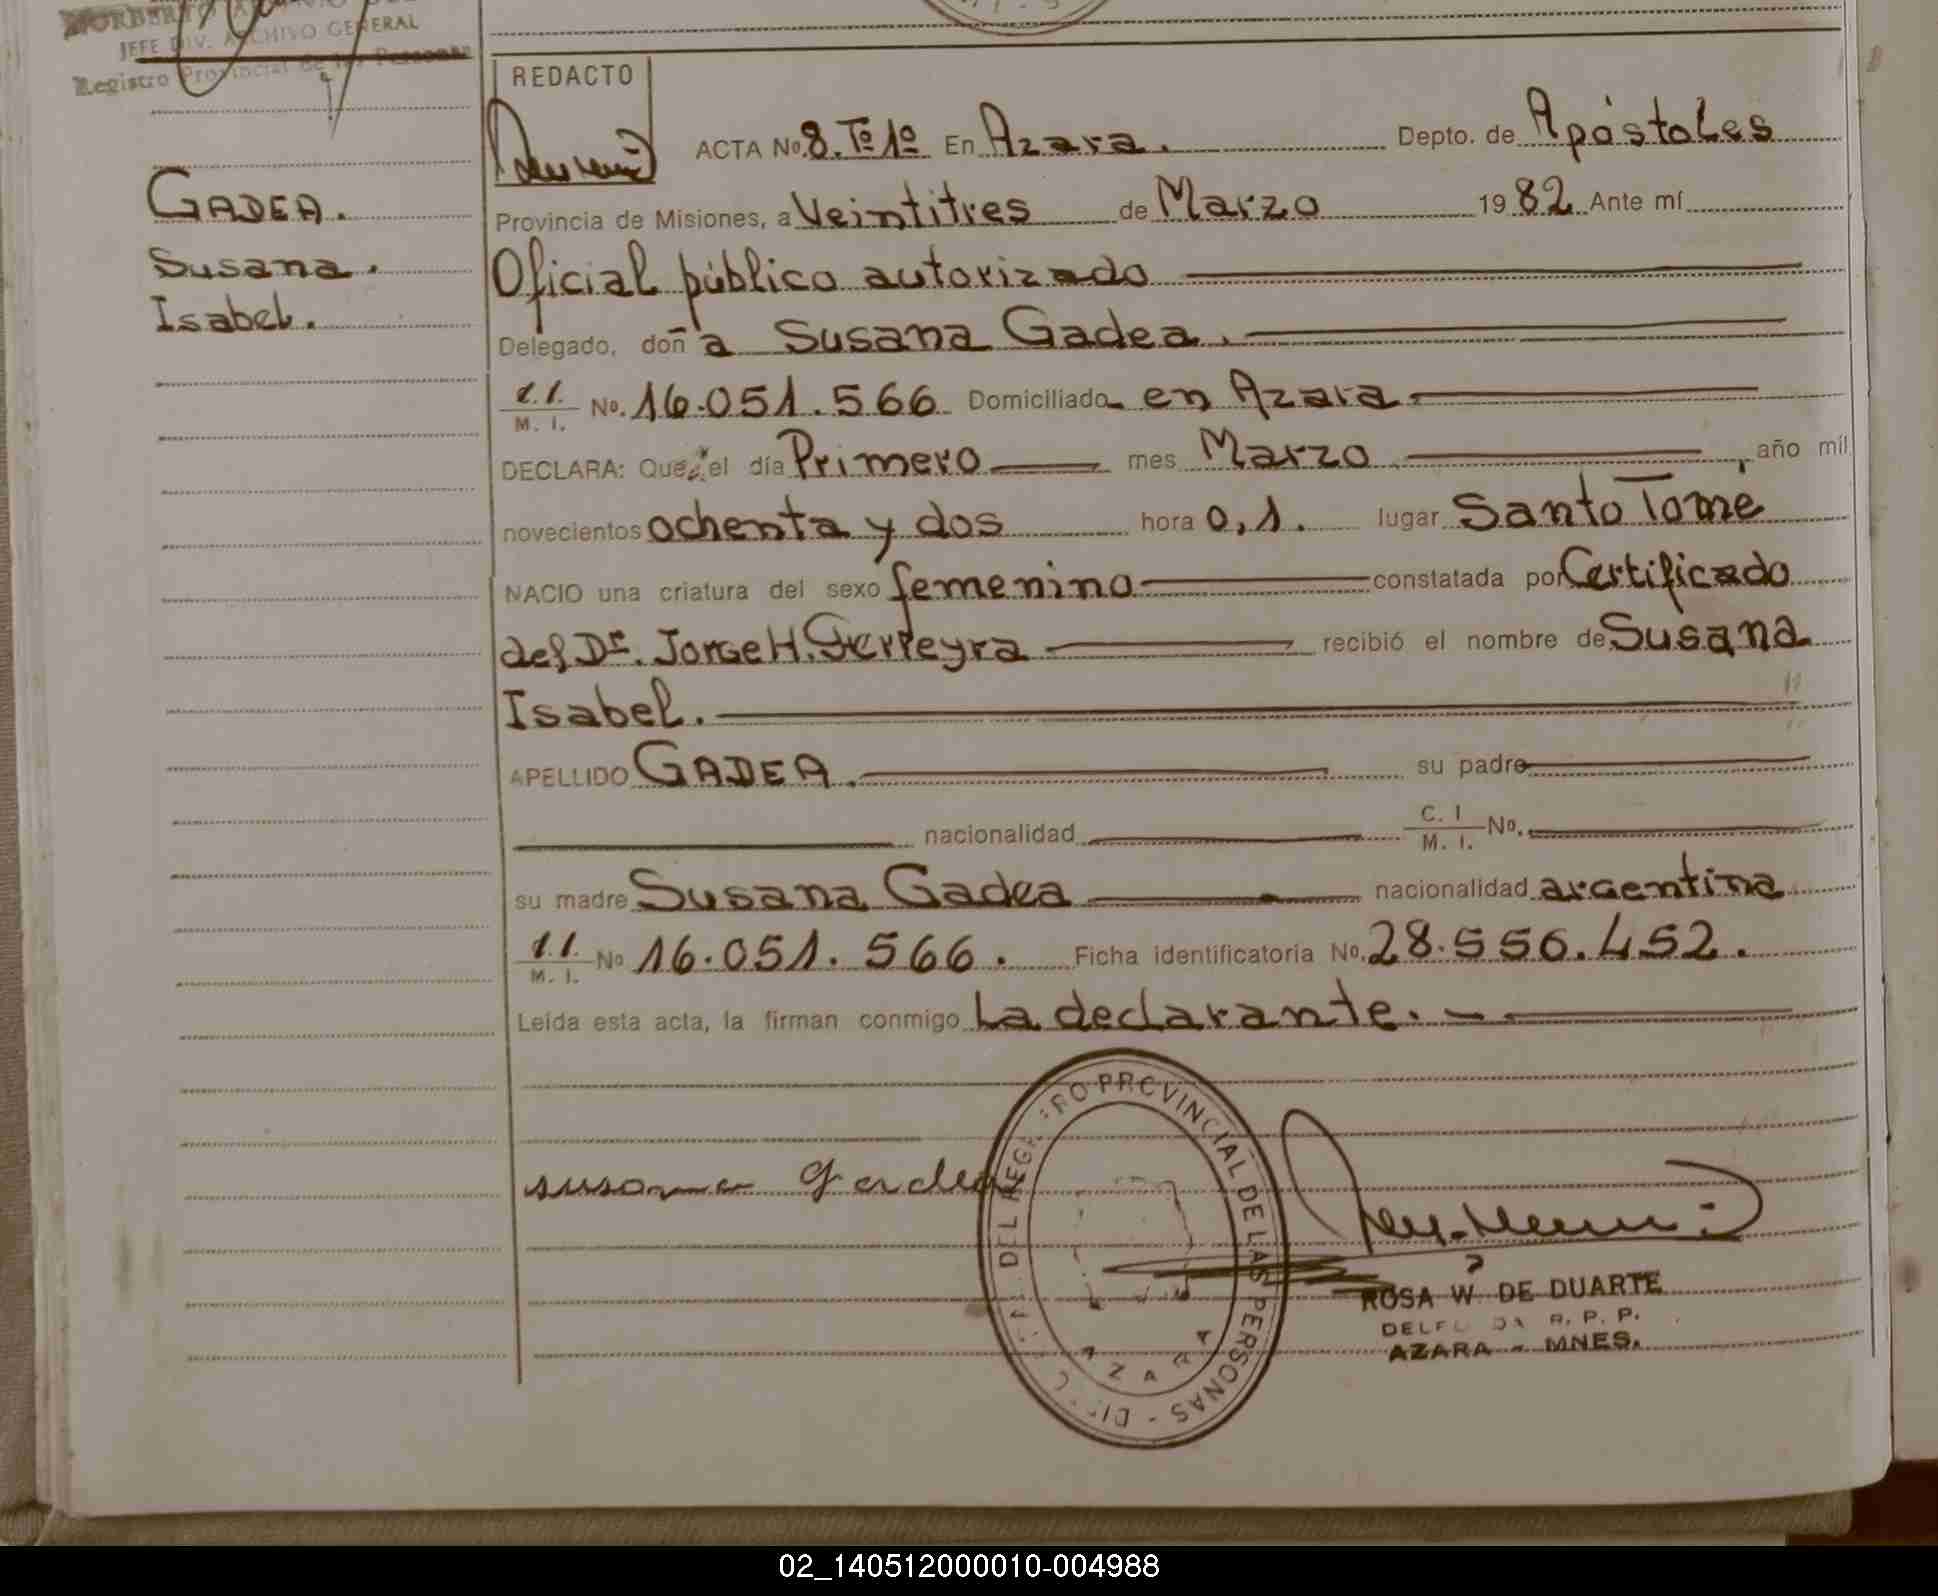 JEFE DIV. ARCHIVO GENERAL
Registro Provincial de las Personas
GADEA.
Susana.
Isabel.
REDACTO
ACTA No. 8. Tº 1º En Azara. Depto. de Apóstoles
Provincia de Misiones, a Veintitres de Marzo 1982 Ante mí
Oficial público autorizado
Delegado, doña Susana Gadea.
C.I. / M. I. No. 16.051.566 Domiciliado en Azara
DECLARA: Que el día Primero mes Marzo, año mil
novecientos ochenta y dos hora 0,1. lugar Santo Tomé
NACIO una criatura del sexo femenino constatada por Certificado
del Dr. Jorge H. Ferreyra recibió el nombre de Susana
Isabel.
APELLIDO GADEA. su padre
nacionalidad C. I / M. I. No.
su madre Susana Gadea nacionalidad argentina
M. I. No 16.051.566. Ficha identificatoria No. 28.556.452.
Leída esta acta, la firman conmigo La declarante.
susana gadea
DEL REGISTRO PROVINCIAL DE LAS PERSONAS
AZARA
ROSA W. DE DUARTE
DELEGADA R. P. P.
AZARA - MNES.
02_140512000010-004988